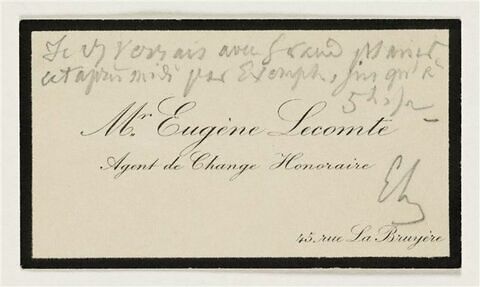 Je vs verrais avec Grand plaisir
cet après midi par Exemple, jusqu'à
5 h
Mr. Eugène Lecomte
Agent de Change Honoraire
EL
45, rue La Bruyère